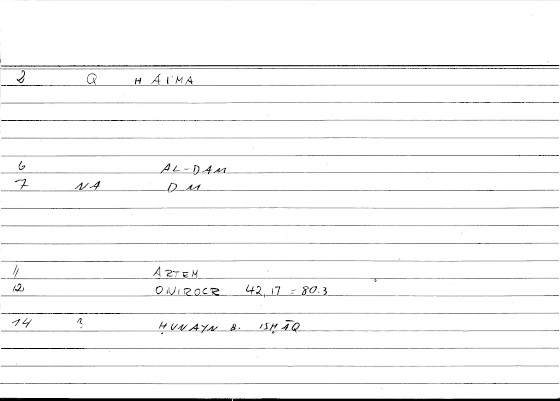 2 Q HAIMA
6 AL-DAM
7 NA DM
11 ARTEM
12 ONIROCR 42,17 = 80.3
14 ? ḤUNAYN B. ISḤĀQ